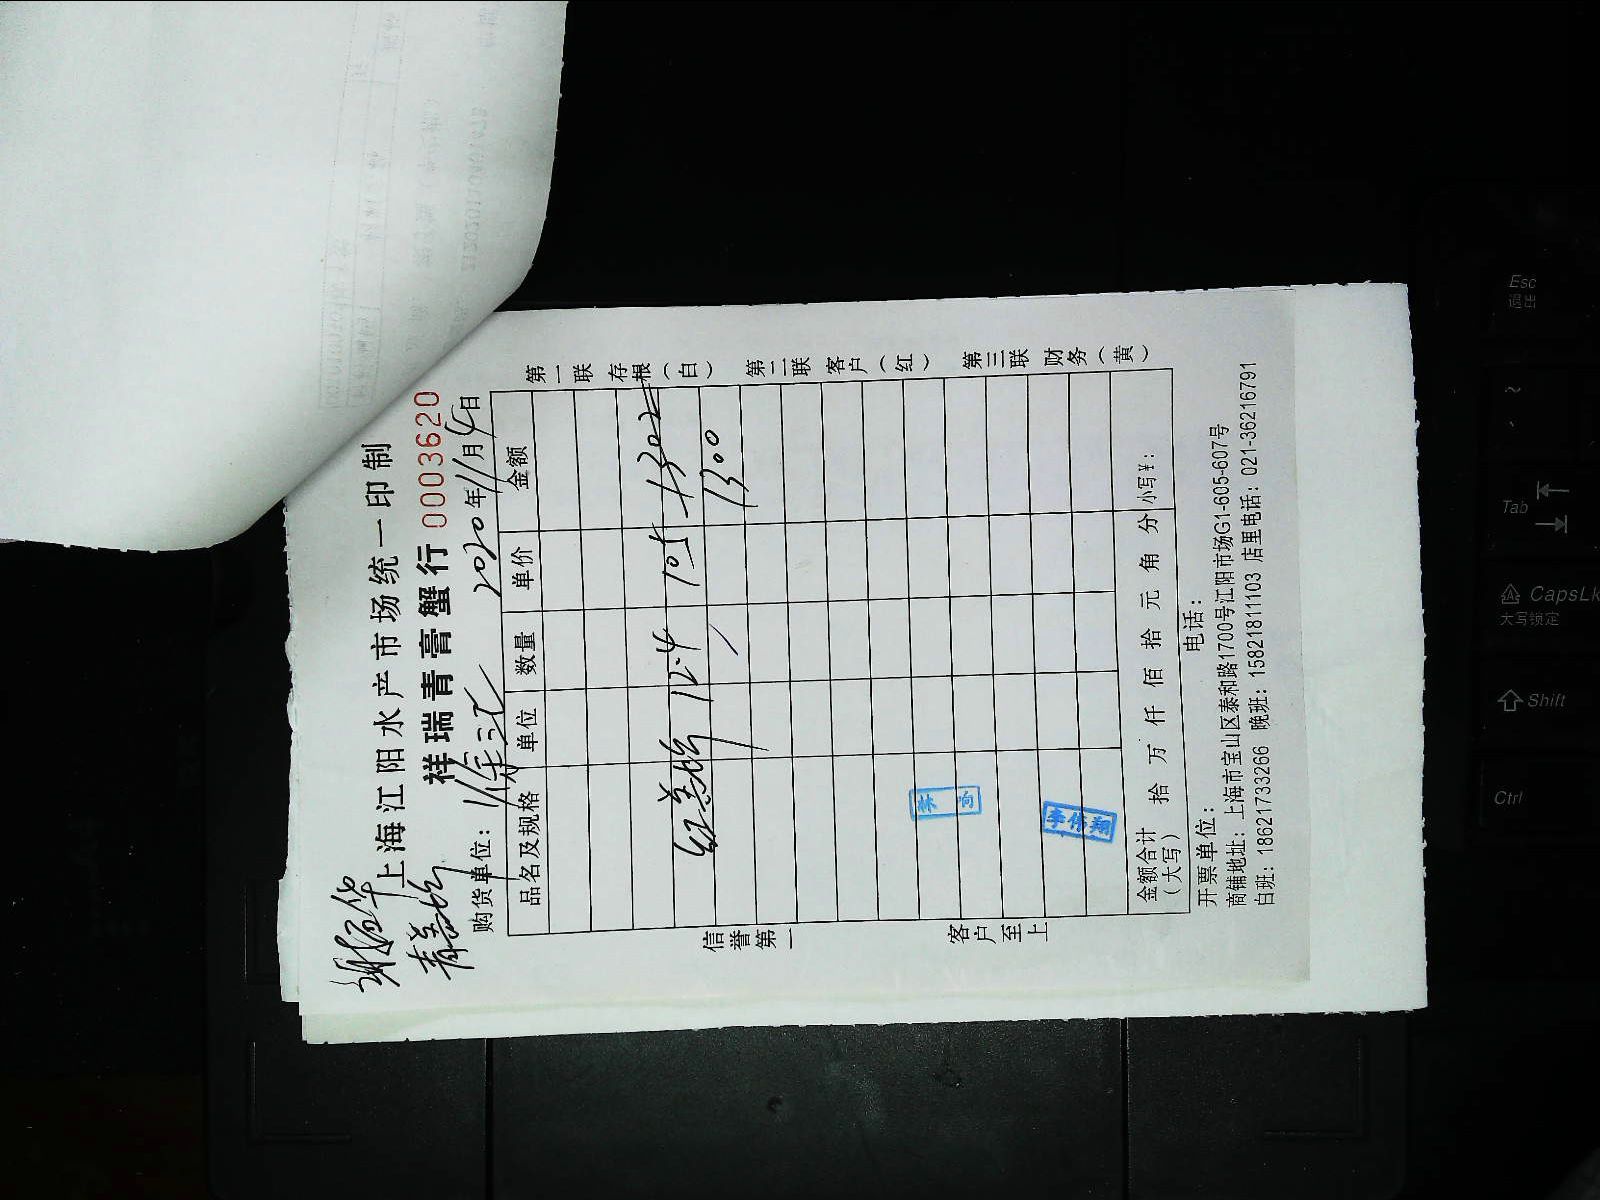 上海江阳水产市场统一印制
祥瑞青膏蟹行 0003620
购货单位: 2020年11月4日
品名及规格 单位 数量 单价 金额
12.4 105 1302
1300
金额合计(大写) 拾 万 仟 佰 拾 元 角 分 小写¥:
开票单位: 电话:
商铺地址: 上海市宝山区泰和路1700号江阳市场G1-605-607号
白班: 18621733266 晚班: 15821811103 店里电话: 021-36216791
第一联 存根(白)
第二联 客户(红)
第三联 财务(黄)
信誉第一
客户至上
李伟翔
Esc
退出
Tab
CapsLk
大写锁定
Shift
Ctrl